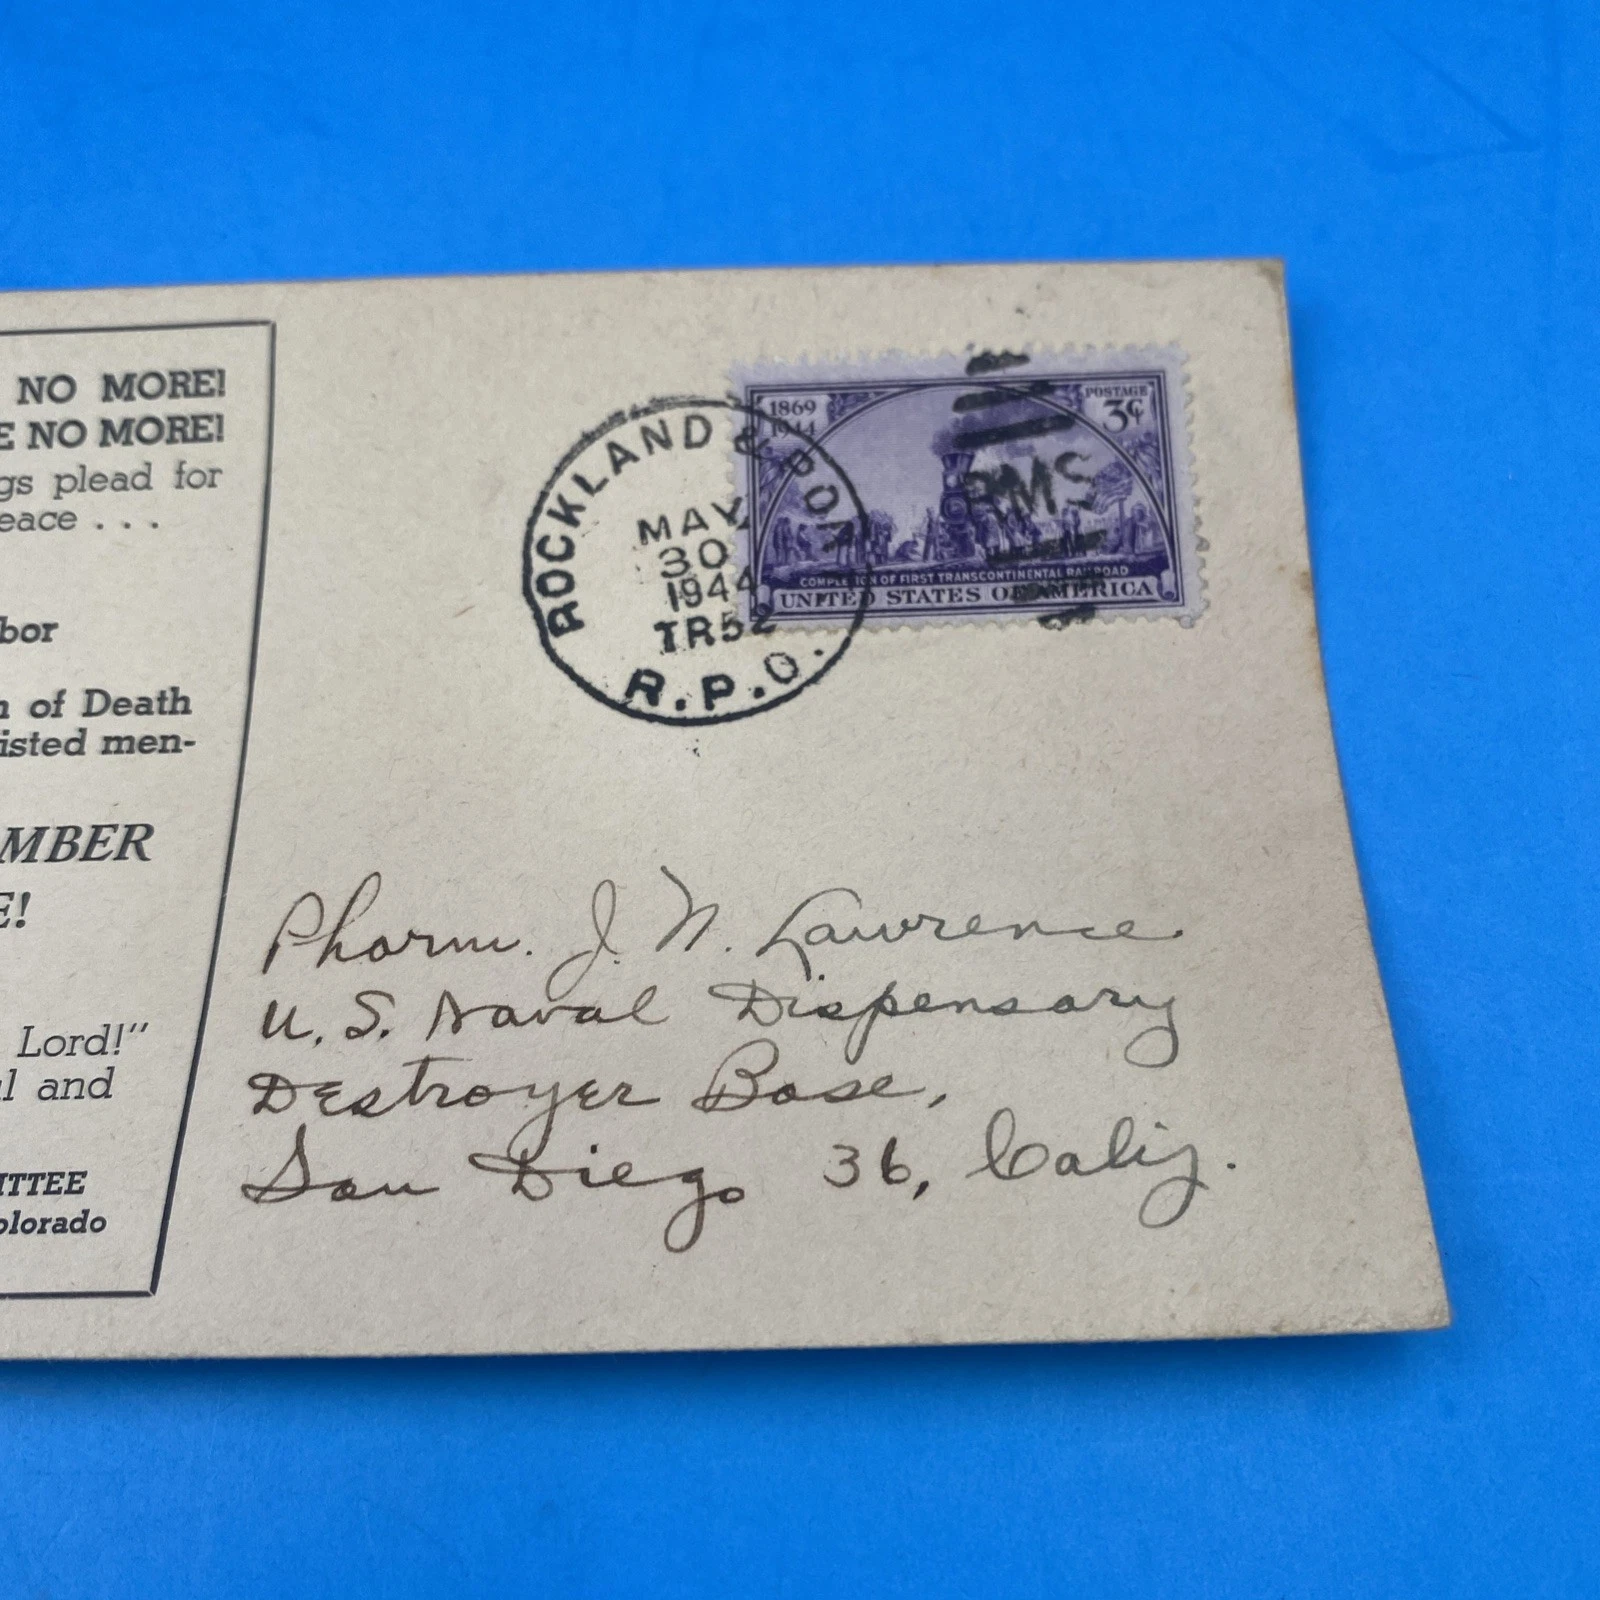 NO MORE!
E NO MORE!
gs plead for
eace . . .
bor
n of Death
isted men-
MBER
E!
Lord!"
l and
ITTEE
olorado
ROCKLAND & POR
MAY
30
1944
TR52
R.P.O.
1869
1944
POSTAGE
3¢
RMS
COMPLETION OF FIRST TRANSCONTINENTAL RAILROAD
UNITED STATES OF AMERICA
Pharm. J. N. Lawrence.
U. S. Naval Dispensary
Destroyer Base,
San Diego 36, Calif.